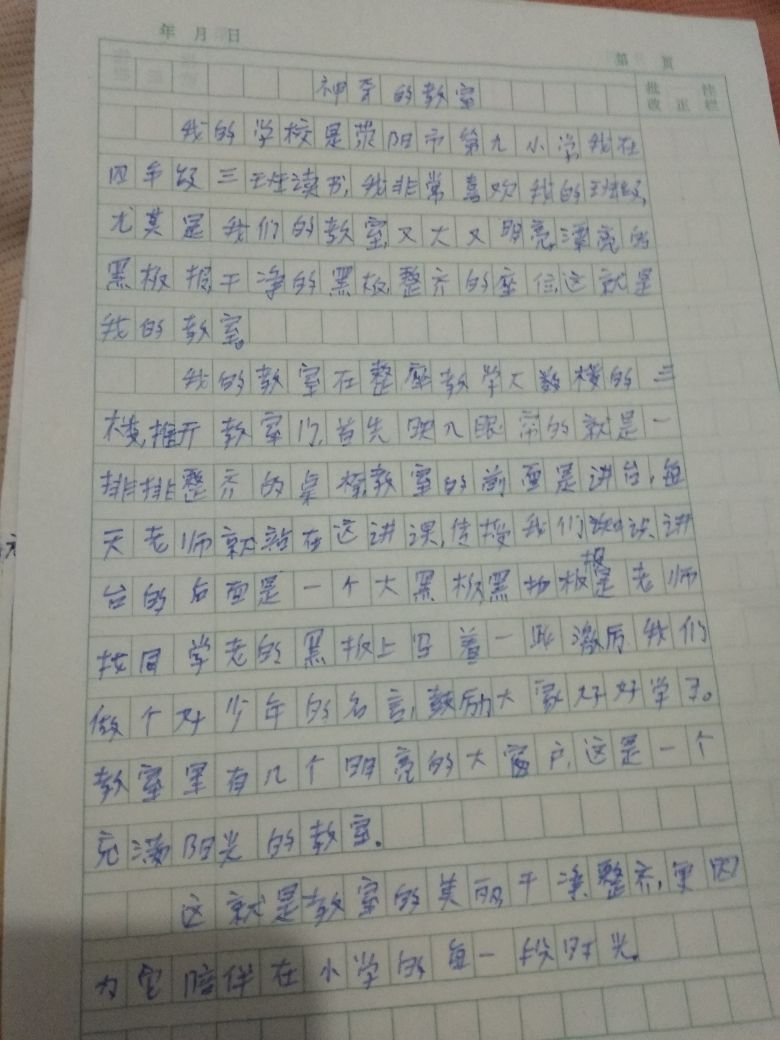 年 月 日
第 页
批改 正栏
神奇的教室
我的学校是荥阳市第九小学,我在
四年级三班读书,我非常喜欢我的班级,
尤其是我们的教室,又大又明亮,漂亮的
黑板报,干净的黑板,整齐的座位,这就是
我的教室。
我的教室在整座教学大楼的三
楼,推开教室门,首先映入眼帘的就是一
排排整齐的桌椅,教室的前面是讲台,每
天老师就站在这讲课,传授我们知识,讲
台的后面是一个大黑板,黑板报是老师
找同学老的黑板上写着一些激历我们
做个好少年的名言,鼓励大家好好学习。
教室里有几个明亮的大窗户,这是一个
充满阳光的教室。
这就是教室的美丽,干净,整齐,更因
为它陪伴在小学的每一段时光。